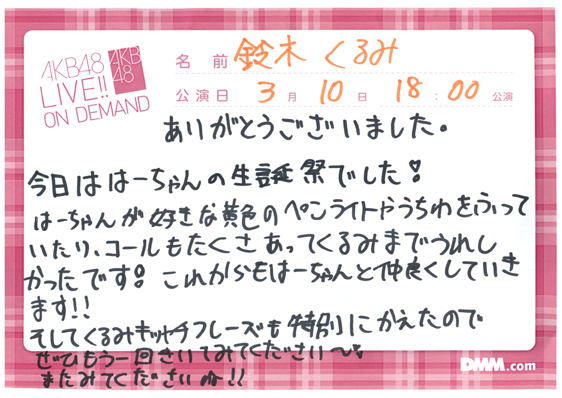 AKB48
LIVE!!
ON DEMAND
AKB
48
名前 鈴木 くるみ
公演日 3月10日 18:00公演
ありがとうございました。
今日ははーちゃんの生誕祭でした!
はーちゃんが好きな黄色のペンライトやうちわをふって
いたり、コールもたくさあってくるみまでうれし
かったです! これからもはーちゃんと仲良くしていき
ます!!
そしてくるみキャッチフレーズも特別にかえたので
ぜひもう一回きいてみてください〜
またみてくださいね!!
DMM.com